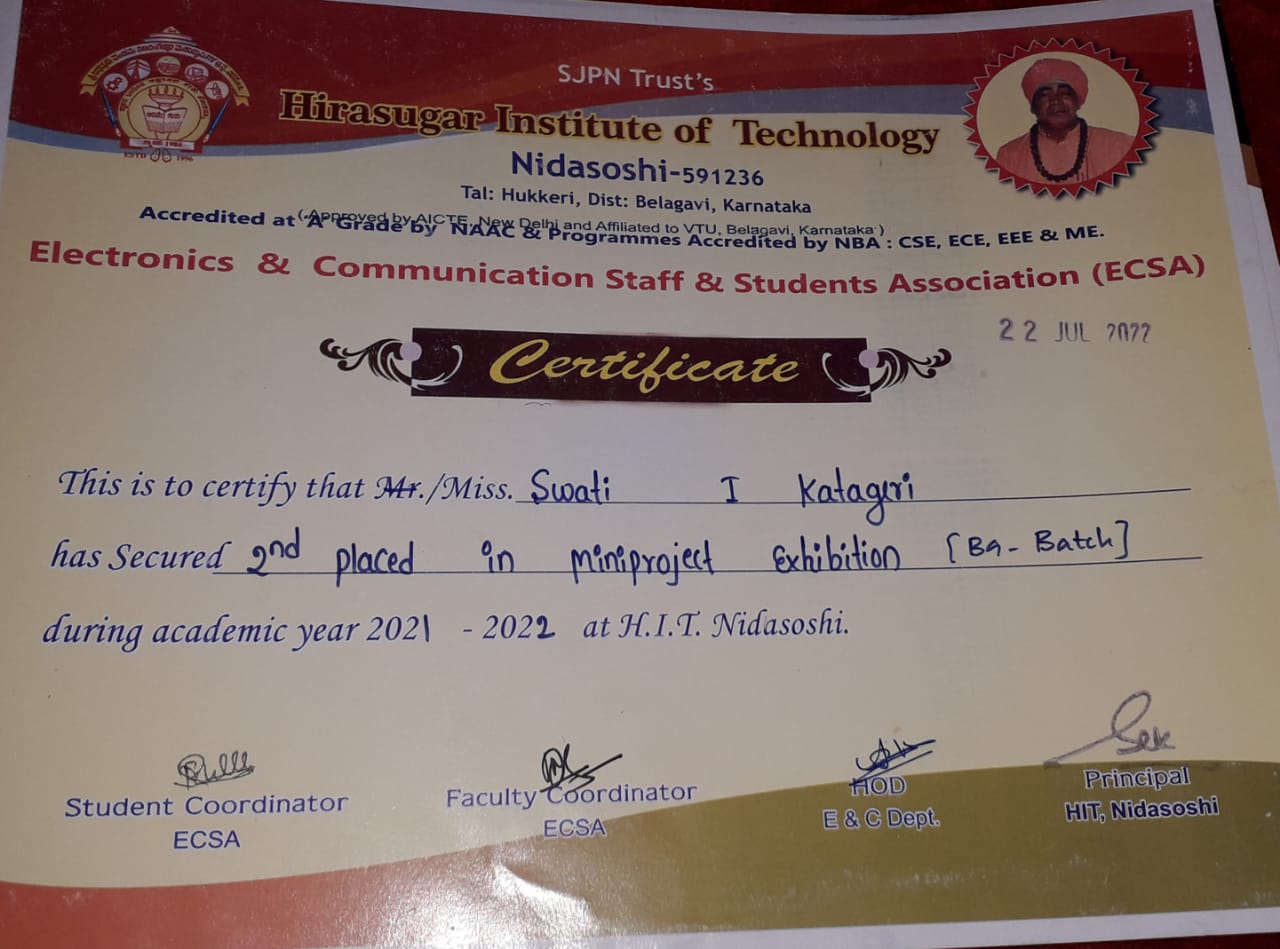 SJPN Trust's
Hirasugar Institute of Technology
Nidasoshi-591236
Tal: Hukkeri, Dist: Belagavi, Karnataka
(Approved by AICTE, New Delhi and Affiliated to VTU, Belagavi, Karnataka)
Accredited at "A" Grade by NAAC & Programmes Accredited by NBA : CSE, ECE, EEE & ME.
Electronics & Communication Staff & Students Association (ECSA)
22 JUL 2022
Certificate
This is to certify that Mr./Miss. Swati I Katageri
has Secured 2nd placed in miniproject Exhibition [B9 - Batch]
during academic year 2021 - 2022 at H.I.T. Nidasoshi.
Student Coordinator
ECSA
Faculty Coordinator
ECSA
HOD
E & C Dept.
Principal
HIT, Nidasoshi
ESTD 1996